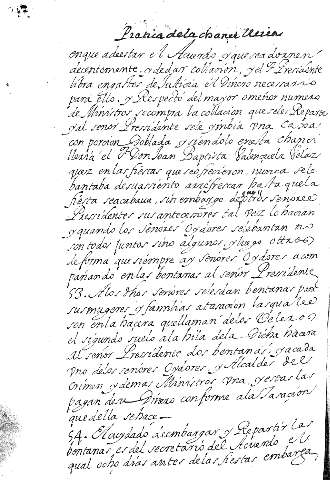 Practica de la chancilleria
en que a de estar el Acuerdo y que se adornen
decentemente, y de dar collacion, y el Sr Presidente
libra en gastos de Justicia el Dinero necessario
para ello, y Respecto del mayor o menor numero
de Ministros se compra la collacion que se les Reparte
y al señor Presidente se le embia una Caxa
con porcion Doblada y siendolo en esta chanci
lleria el Sr Don Juan Baptista Valenzuela Velaz
quez en las fiestas que se ofrecieron nunca se le
bantaba de su assiento a refrescar hasta que la
fiesta se acavaba, sin embargo de que otros señores
Presidentes sus antecesores tal vez lo hacian
y quando los señores Oydores se lebantan no
son todos juntos sino algunos, y luego otros
de forma que siempre ay señores Oydores acom
pañando en las bentanas al señor Presidente
53. A los dhos señores se les dan bentanas para
sus mugeres y familias a tasacion las quales
sen en la hacera que llaman de los
el segundo suelo a la hila de la Dicha hacera
al señor Presidente dos bentanas, y a cada
uno de los señores Oydores, y Alcaldes del
Crimen, y demas Ministros una, y estas las
pagan de su Dinero conforme a la tasacion
que de ella se hace
54. El cuydado de embargar, y Repartir las
bentanas, es del secretario del Acuerdo el
qual ocho dias antes de las fiestas embarga